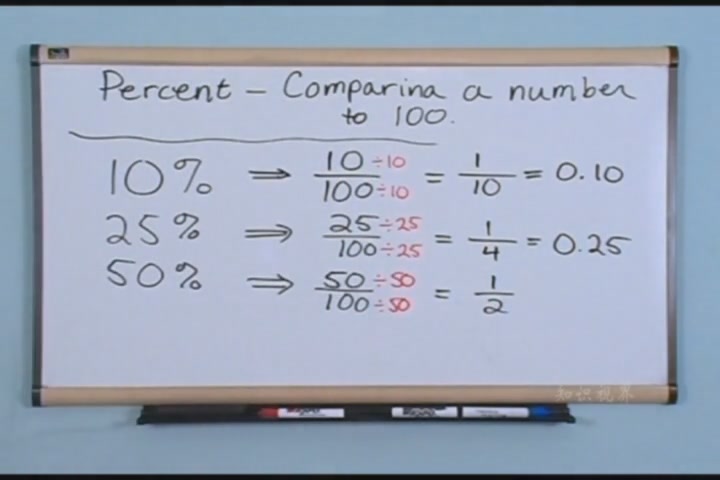 Percent - Comparing a number
to 100.
10% ⇒ 10 ÷10 / 100 ÷10 = 1/10 = 0.10
25% ⇒ 25 ÷25 / 100 ÷25 = 1/4 = 0.25
50% ⇒ 50 ÷50 / 100 ÷50 = 1/2
知识视界